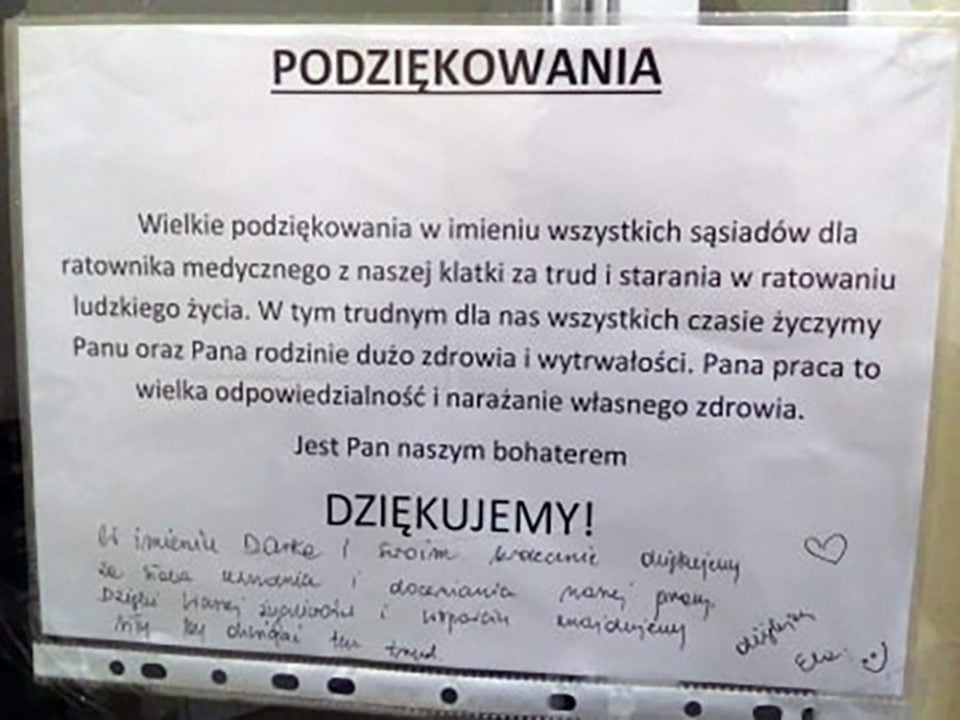 PODZIĘKOWANIA
Wielkie podziękowania w imieniu wszystkich sąsiadów dla
ratownika medycznego z naszej klatki za trud i starania w ratowaniu
ludzkiego życia. W tym trudnym dla nas wszystkich czasie życzymy
Panu oraz Pana rodzinie dużo zdrowia i wytrwałości. Pana praca to
wielka odpowiedzialność i narażanie własnego zdrowia.
Jest Pan naszym bohaterem
DZIĘKUJEMY!
W imieniu Darka i swoim serdecznie dziękujemy
za słowa uznania i doceniania naszej pracy.
Dzięki Waszej życzliwości i wsparciu znajdujemy
siły by dźwigać ten trud.